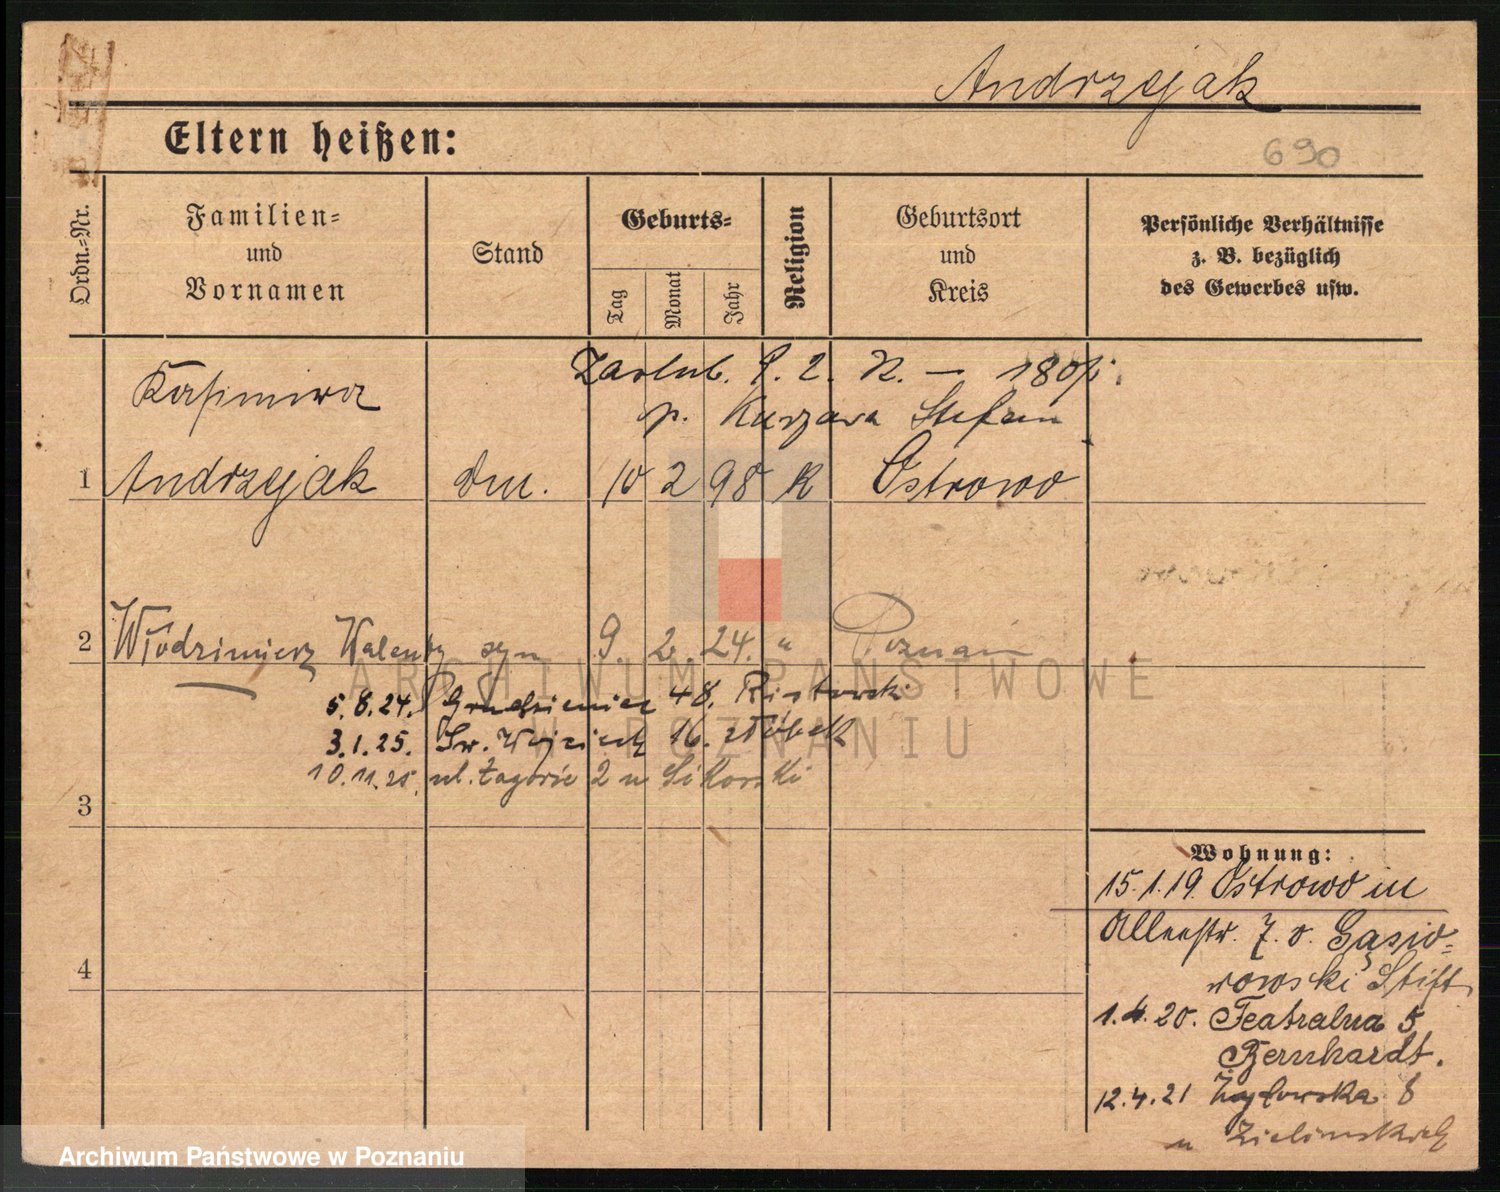 Andrzejak
Eltern heißen:
690
Ordn.=Nr.
Familien=
und
Vornamen
Stand
Geburts=
Tag
Monat
Jahr
Religion
Geburtsort
und
Kreis
Persönliche Verhältnisse
z. B. bezüglich
des Gewerbes usw.
Kasimira
p. Kurzawa Stefan
1 Andrzejak 10 2 98 K Ostrowo
2 Włodzimierz Walenty syn 9. 2. 24. " Poznań
5.8.24. 48.
3.1.25. Św. Wojciech 16.
10.11.25. ul. Zagórze 2 u Sikorski
3
4
Wohnung:
15.1.19. Ostrowo in
Alleestr. 7. v. Gąsio=
rowski Stift
1.4.20. Teatralna 5
Bernhardt.
12.4.21 Żydowska 8
u Zielinskich
ARCHIWUM PAŃSTWOWE
W POZNANIU
Archiwum Państwowe w Poznaniu